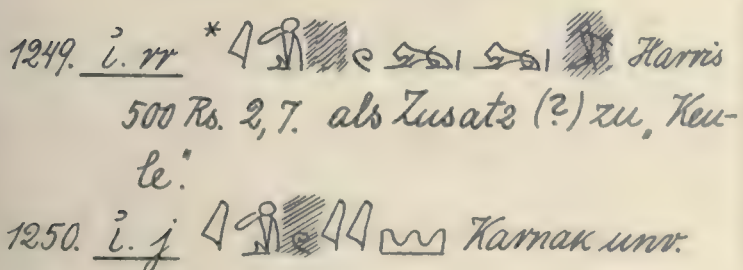 1249. ỉ. rr * Harris
500 Rs. 2, 7. als Zusatz (?) zu „Keu-
le".
1250. ỉ. j Karnak unv.